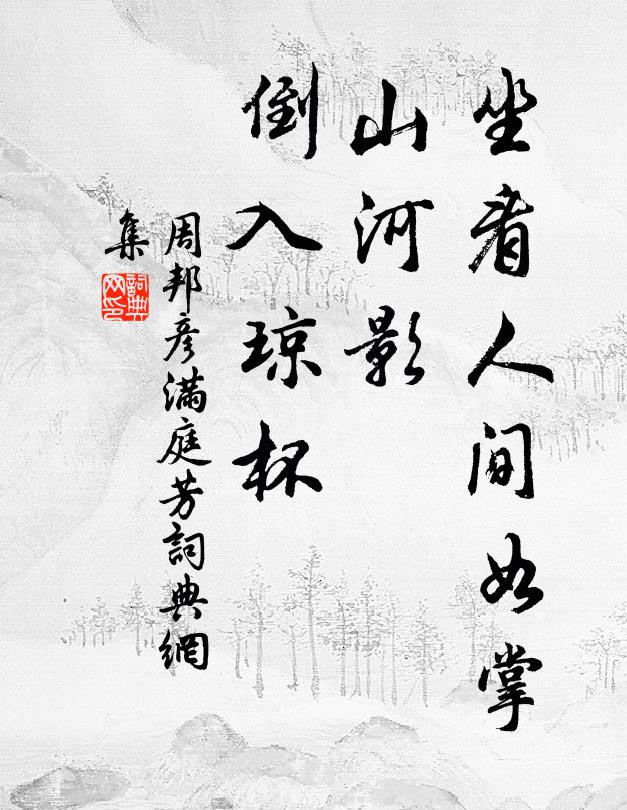 坐看人间如掌
山河影
倒入琼杯
周邦彦滿庭芳詞典網
集
詞典
网印